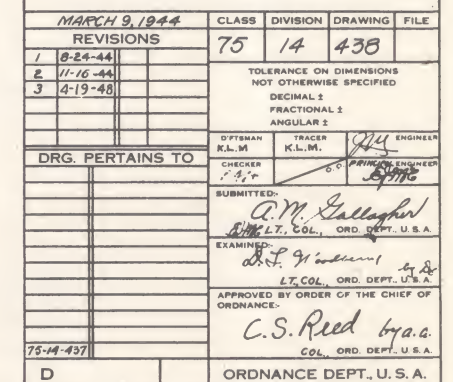 MARCH 9, 1944
REVISIONS
1 8-24-44
2 11-16-44
3 4-19-48
DRG. PERTAINS TO
75-14-437
D
CLASS DIVISION DRAWING FILE
75 14 438
TOLERANCE ON DIMENSIONS
NOT OTHERWISE SPECIFIED
DECIMAL ±
FRACTIONAL ±
ANGULAR ±
D'FTSMAN TRACER ENGINEER
K.L.M K.L.M.
CHECKER O.O. PRINCIPAL ENGINEER
SUBMITTED:-
A.M. Gallagher
LT., COL., ORD. DEPT., U.S.A.
EXAMINED:-
LT., COL., ORD. DEPT., U.S.A.
APPROVED BY ORDER OF THE CHIEF OF
ORDNANCE:-
C.S. Reed by a.a.
COL., ORD. DEPT., U.S.A.
ORDNANCE DEPT., U.S.A.